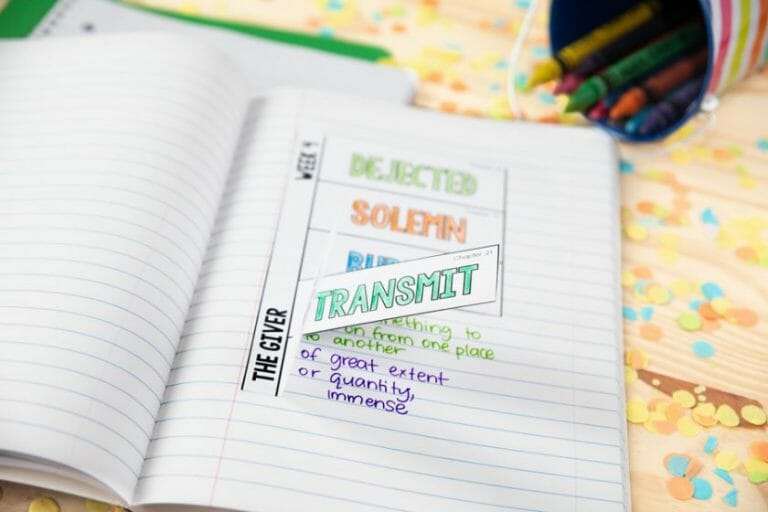 WEEK 4
THE GIVER
DEJECTED
SOLEMN
Chapter 21
TRANSMIT
to
on from one place
to another
of great extent
or quantity,
immense